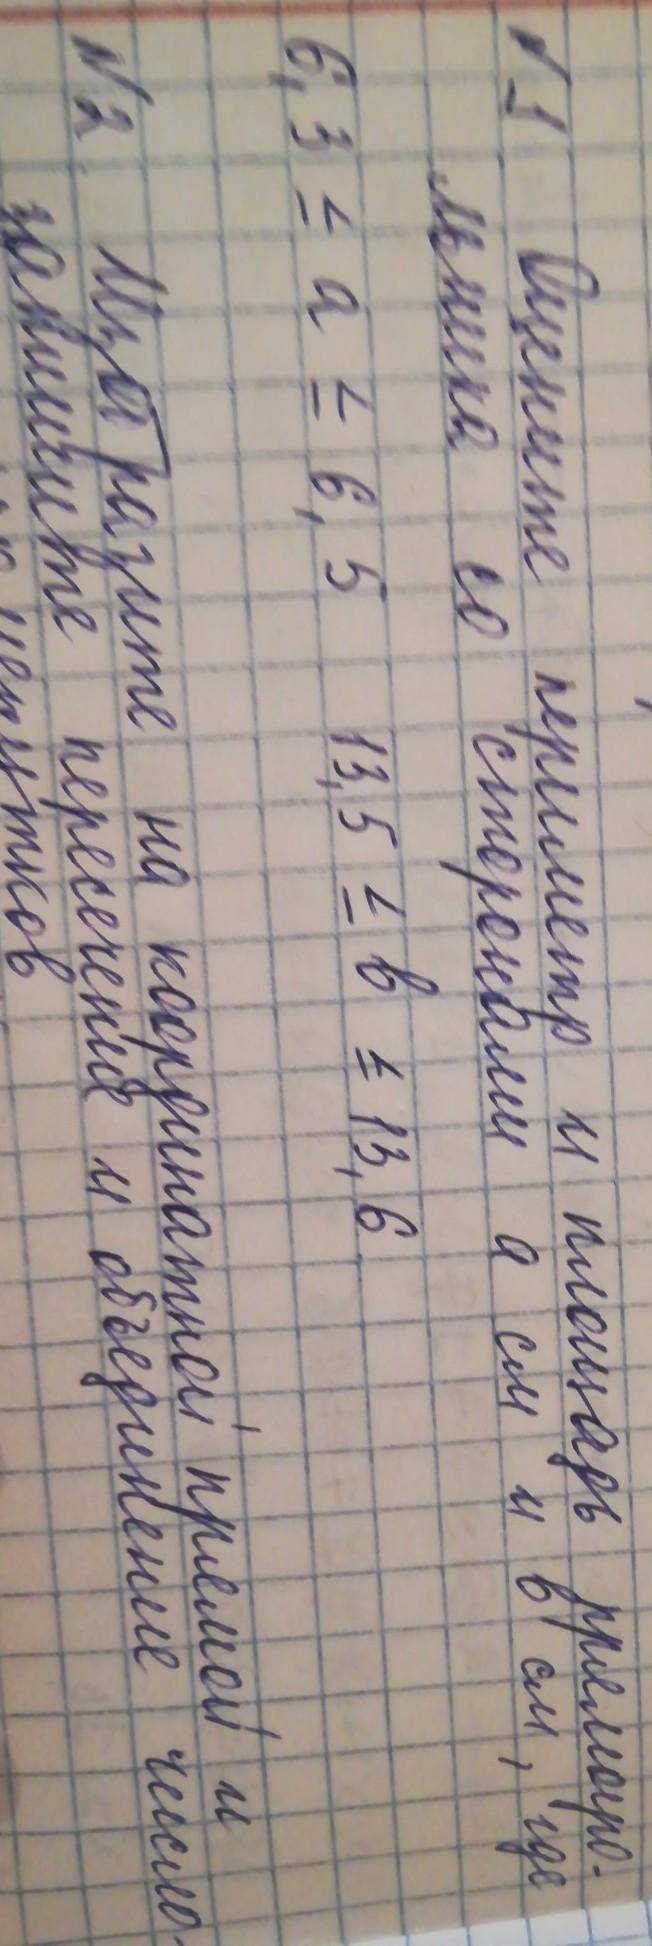 №1 Оцените периметр и площадь прямоуго-
льника со сторонами а см и в см, где
6,3 ≤ a ≤ 6,5 13,5 ≤ в ≤ 13,6
№2 Изобразите на координатной прямой и
запишите пересечение и объединение число-